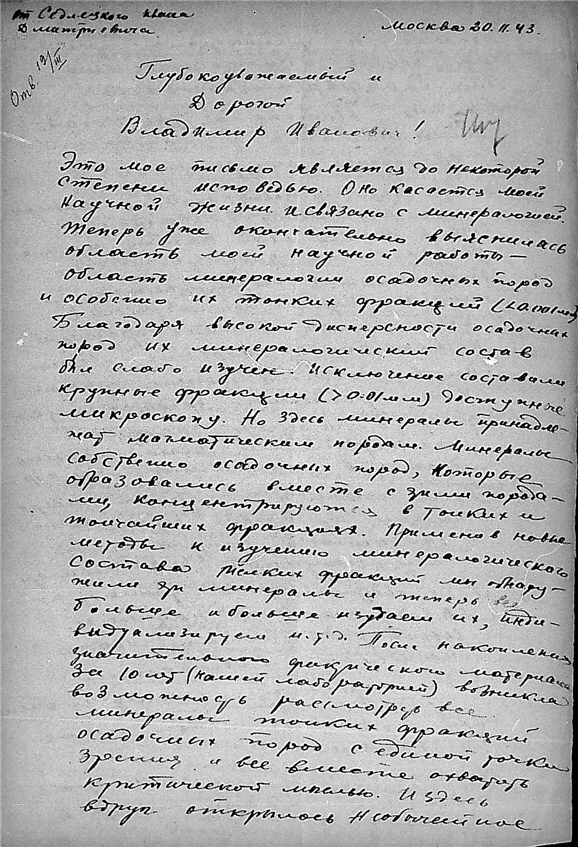 от Седлецкого Ивана
Дмитриевича
Москва 20.II.43.
Отв. 19/III
Глубокоуважаемый и
Дорогой
Владимир Иванович!
Это мое письмо является до некоторой
степени исповедью. Оно касается моей
научной жизни и связано с минералогией.
Теперь уже окончательно выяснилась
область моей научной работы —
область минералогии осадочных пород
и особенно их тонких фракций (<0.001мм)
Благодаря высокой дисперсности осадочных
пород их минералогический состав
был слабо изучен. Исключение составляли
крупные фракции (>0.01мм) доступные
микроскопу. Но здесь минералы принадле-
жат магматическим породам. Минералы
собственно осадочных пород, которые
образовались вместе с этими порода-
ми, концентрируются в тонких и
тончайших фракциях. Применив новые
методы к изучению минералогического
состава тонких фракций мы обнару-
жили эти минералы и теперь все
больше и больше находим их, инди-
видуализируем и.т.д. После накопления
значительного фактического материала
за 10 лет (нашей лабораторией) возникла
возможность рассмотреть все
минералы тонких фракций
осадочных пород с единой точки
зрения и все вместе охватить
критической мыслью. И здесь
вдруг открылось необычайное